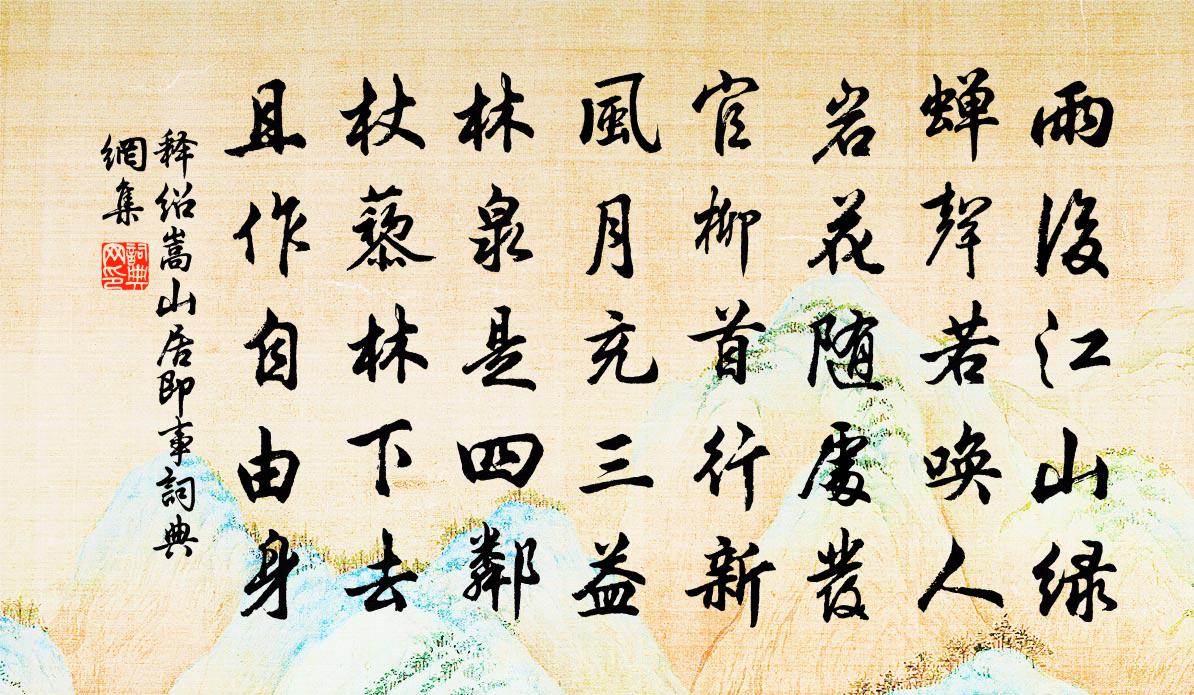 雨後江山绿
蝉聲若唤人
岩花随處發
官柳首行新
風月充三益
林泉是四鄰
杖藜林下去
且作自由身
释绍嵩山居即事詞典
網集
詞典
网印